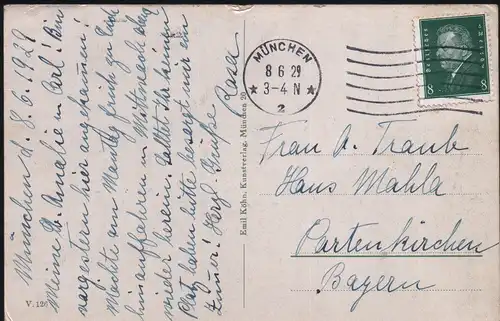 München d. 8.6.1929
Meine l. Amalie u. Carl! Bin
vorgestern hier angekommen.
Möchte am Montag früh zu Euch
hinauffahren u. Mittwoch aber
wieder herein. Solltet Ihr keinen
Platz haben bitte besorgt mir ein
Zimmer! Herzl. Grüße
Rosa
V. 126
Emil Köhn, Kunstverlag, München 20
MÜNCHEN
8 6 29
3-4 N
2
Deutsches Reich
8 8
Frau A. Traub
Haus Mahla
Partenkirchen
Bayern